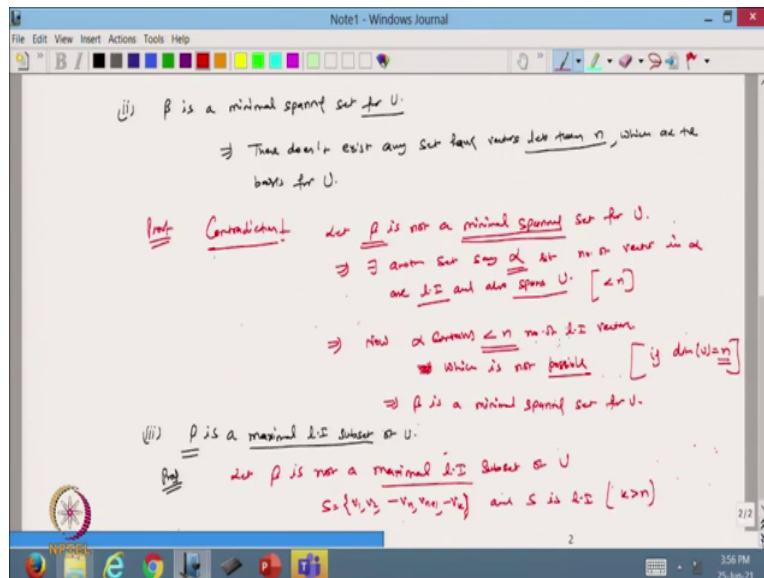 Note1 - Windows Journal
File Edit View Insert Actions Tools Help
(ii) β is a minimal spannig set for U.
⇒ There doesn't exist any set have vectors less than n, which are the
basis for U.
Proof Contradiction Let β is not a minimal spanning set for U.
⇒ ∃ another set say α st no of vector in α
are l.I and also spans U. [<n]
⇒ Now α contains < n no. of l.I vector
which is not possible [if dim(U)=n]
⇒ β is a minimal spannig set for U.
(iii) β is a maximal l.I subset of U.
Proof Let β is not a maximal l.I subset of U
S = {v1, v2, -vn, vn+1, -vk} and S is l.I (k>n)
NPTEL
2
2/2
3:56 PM
25-Jun-21